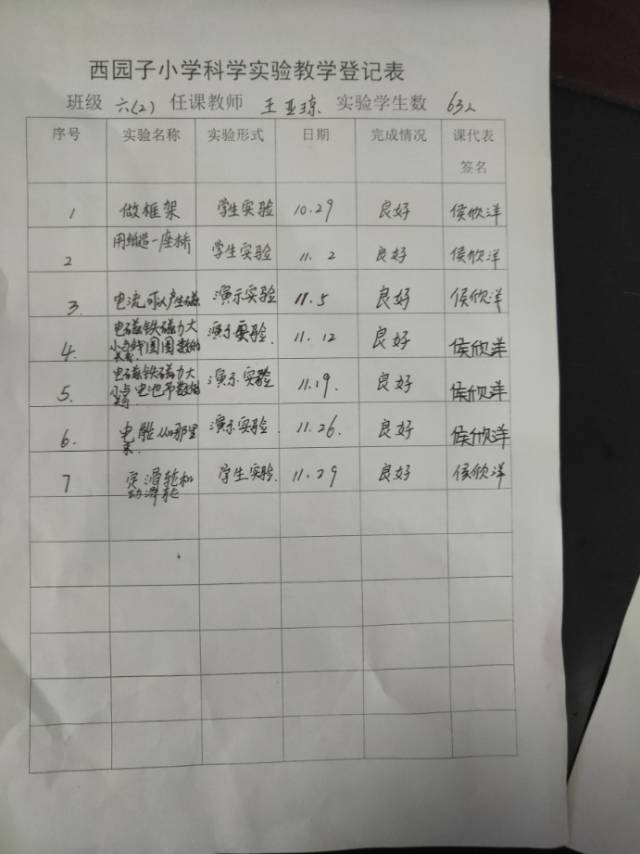 西园子小学科学实验教学登记表
班级 六(2) 任课教师 王亚琼 实验学生数 63人
序号 实验名称 实验形式 日期 完成情况 课代表签名
1 做框架 学生实验 10.29 良好 侯欣洋
2 用纸造一座桥 学生实验 11.2 良好 侯欣洋
3. 电流可以产生磁 演示实验 11.5 良好 侯欣洋
4. 电磁铁磁力大 演示实验. 11.12 良好 侯欣洋
小与线圈圈数的
关系.
5. 电磁铁磁力大 演示实验 11.19. 良好 侯欣洋
小与电池节数的
关系
6. 电能从哪里 演示实验. 11.26. 良好 侯欣洋
来.
7 定滑轮和 学生实验. 11.29 良好 侯欣洋
动滑轮